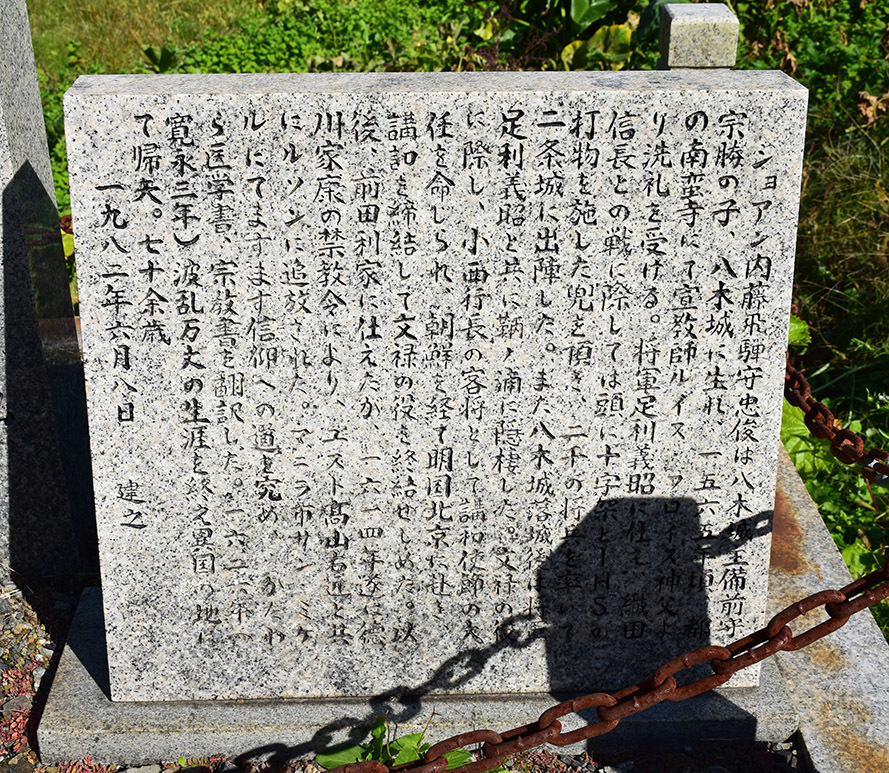 ジョアン内藤飛騨守忠俊は八木城主備前守
宗勝の子、八木城に生れ、一五六五年頃、都
の南蛮寺にて宣教師ルイス フロイス神父よ
り洗礼を受ける。将軍足利義昭に仕え、織田
信長との戦に際しては頭に十字架とIHSの
打物を施した兜を頂き、二千の将兵を率いて
二条城に出陣した。また八木城落城後は将軍
足利義昭と共に鞆ノ浦に隠棲した。文禄の役
に際し、小西行長の客将として講和使節の大
任を命じられ、朝鮮を経て明国北京に赴き、
講和を締結して文禄の役を終結せしめた。以
後、前田利家に仕えたが 一六一四年遂に徳
川家康の禁教令により、ユスト高山右近と共
にルソンに追放された。マニラ市サン ミゲ
ルにてますます信仰への道を究め、かたわ
ら医学書、宗教書を翻訳した。一六二六年(
寛永三年)波乱万丈の生涯を終え異国の地に
て帰天。七十余歳
一九八二年六月八日 建之